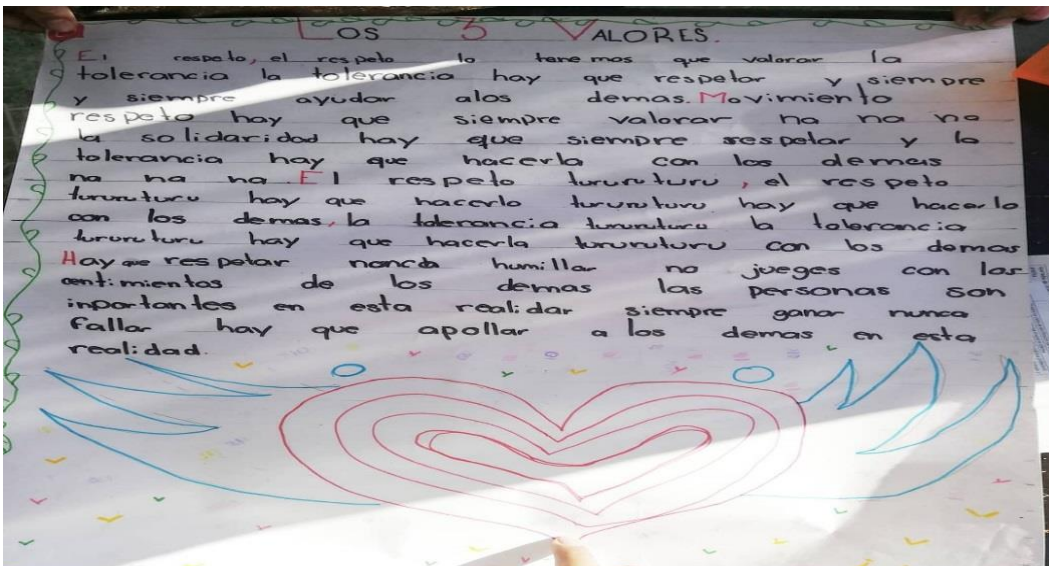 LOS 3 VALORES.
El respeto, el respeto lo tenemos que valorar la
tolerancia la tolerancia hay que respetar y siempre
y siempre ayudar alos demas. Movimiento
respeto hay que siempre valorar na na na
la solidaridad hay que siempre respetar y la
tolerancia hay que hacerla con los demas
na na na. El respeto turururturu, el respeto
turururturu hay que hacerlo turururturu hay que hacerlo
con los demas, la tolerancia turururturu la tolerancia
turururturu hay que hacerla turururturu con los demas
Hay respetar humillar no jueges con los
centimientos de los demas las personas son
inportantes en esta realidar siempre ganar nunca
fallar hay que apollar a los demas en esta
realidad.